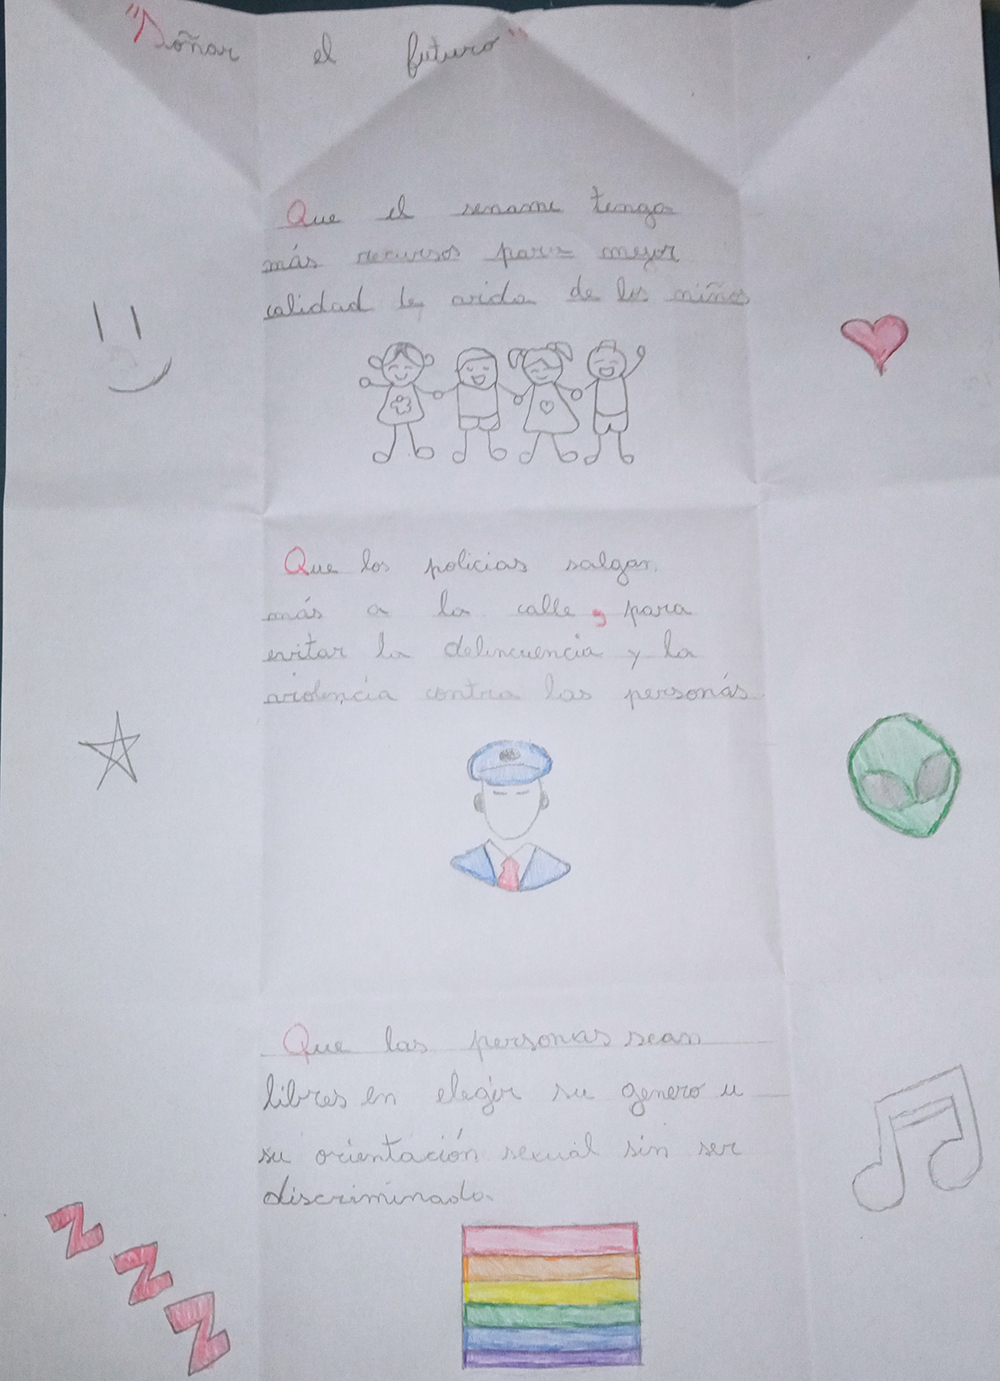 "Soñar el futuro"
Que el sename tenga
más recursos para mejor
calidad de vida de los niños
Que los policias salgan
más a la calle, para
evitar la delincuencia y la
violencia contra las personás
Que las personas sean
libres en elegir su genero u
su orientación sexual sin ser
discriminado.
z
z
z